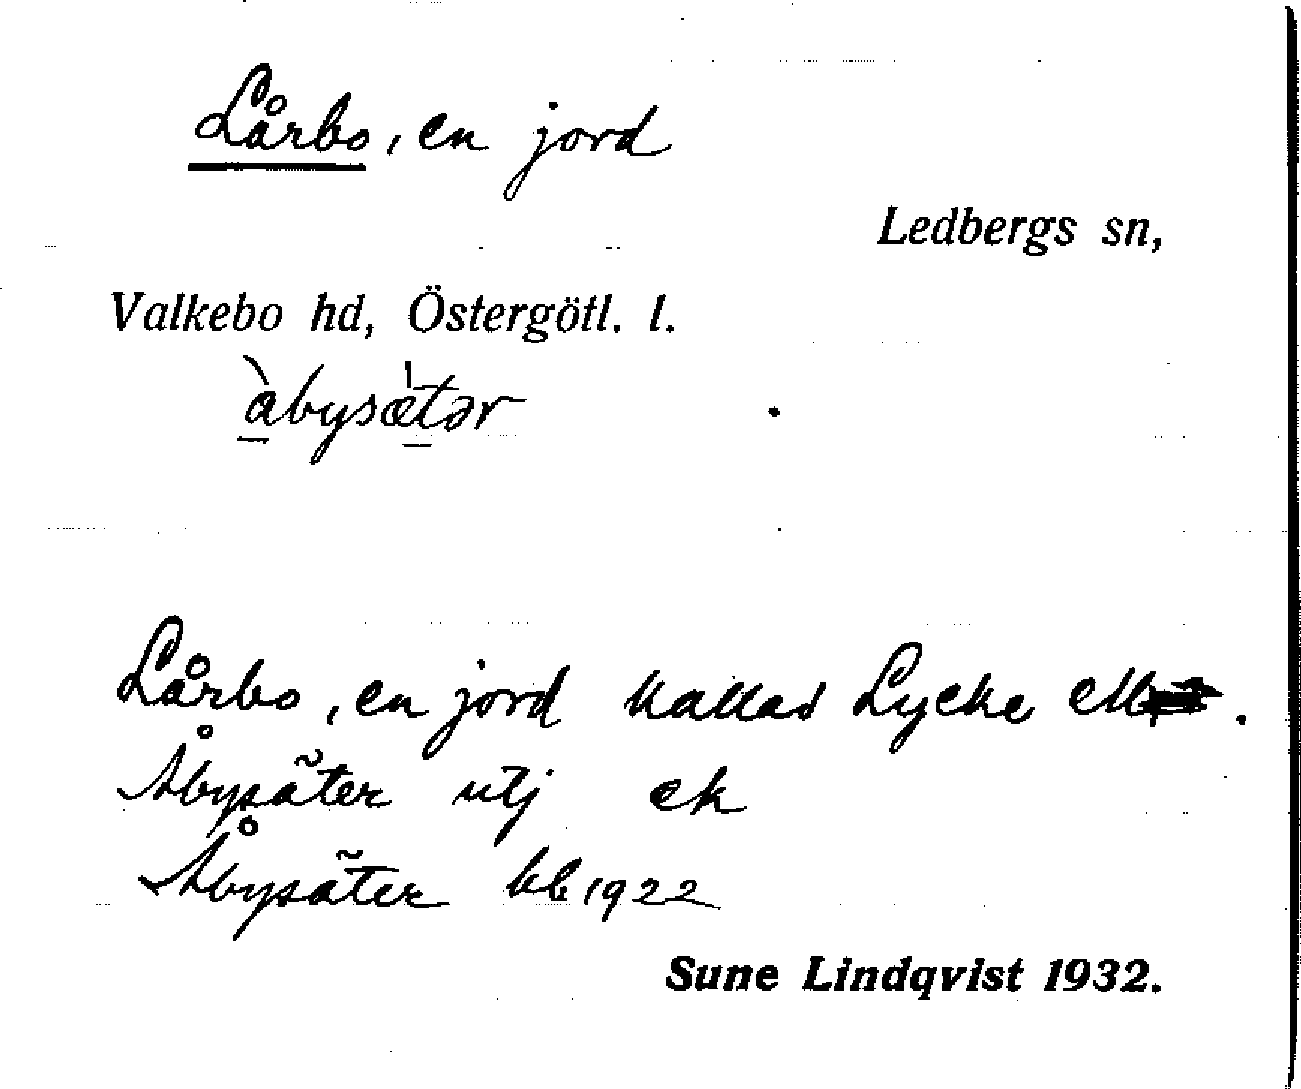 Lårbo, en jord
Ledbergs sn,
Valkebo hd, Östergötl. l.
àbysætər
Lårbo, en jord kallad Lycke ell.
Åbysäter utj ek
Åbysäter kb 1922
Sune Lindqvist 1932.